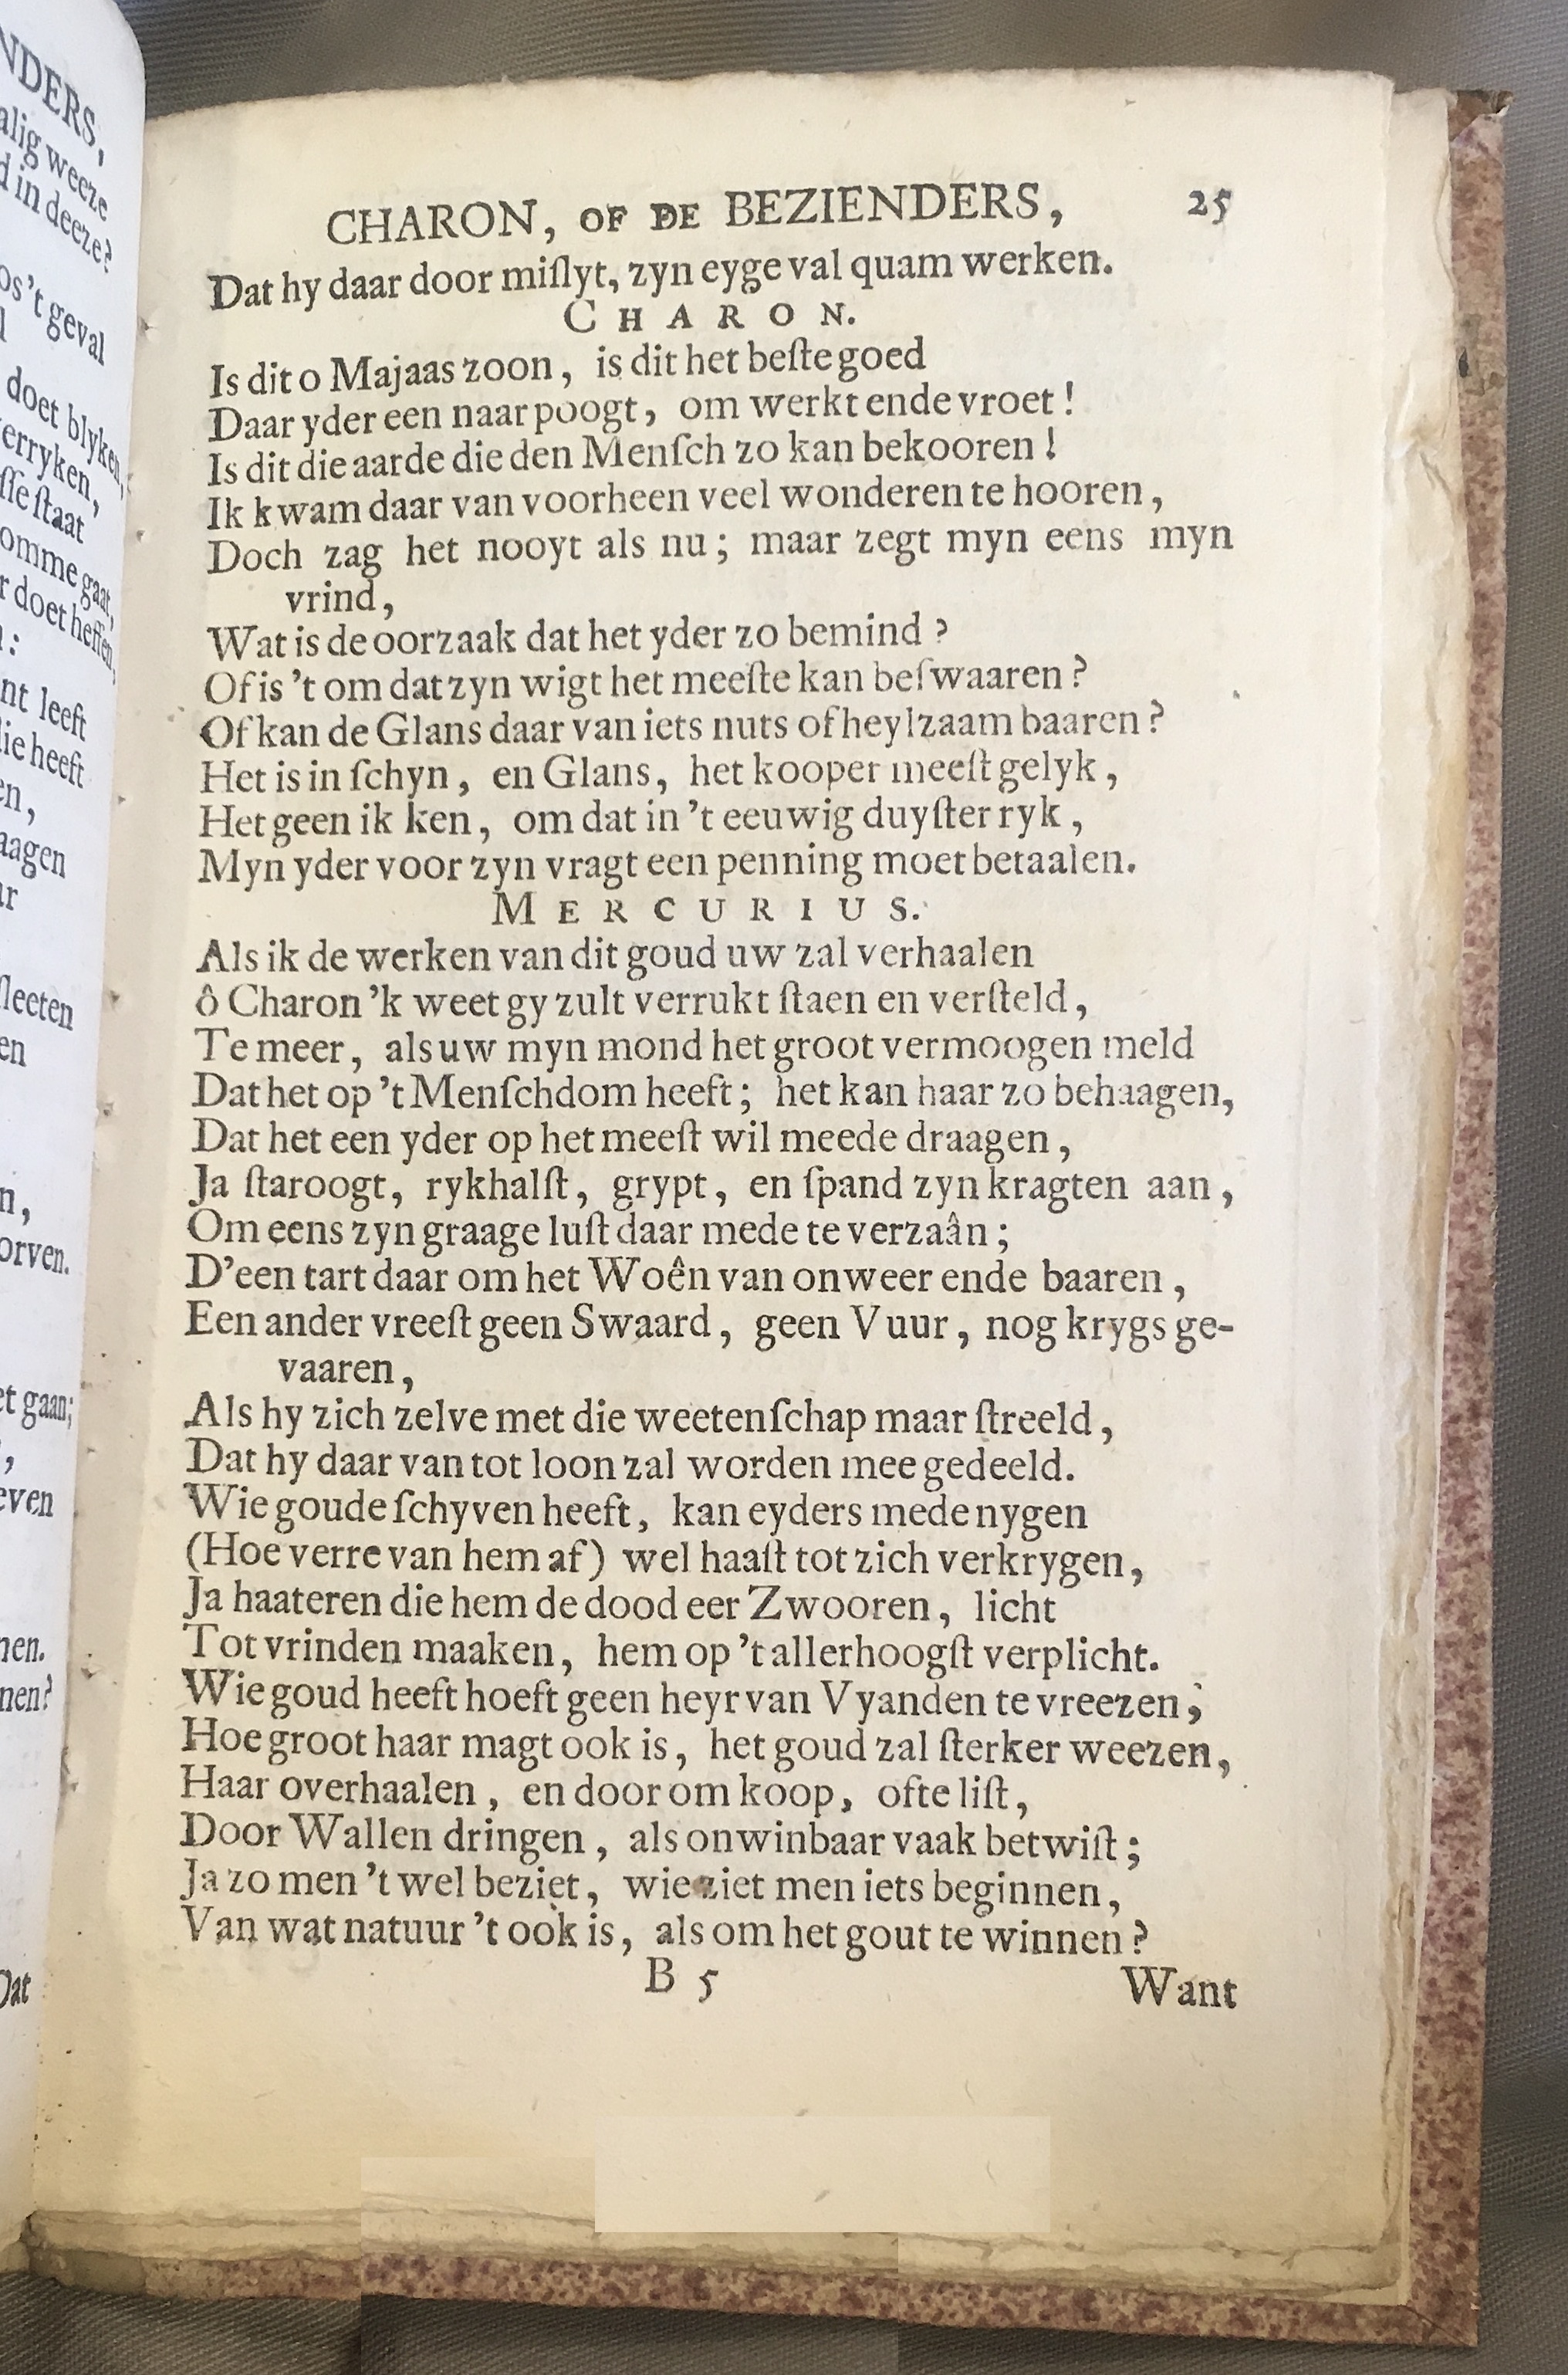 NDERS,
alig weeze
d in deeze?
os 't geval
doet blyken,
erryken,
ſſe ſtaat
omme gaat,
r doet heffen,
nt leeft
die heeft
en,
aagen
ſleeten
en
n,
orven.
et gaan;
even
nen.
nen?
Dat
CHARON, OF DE BEZIENDERS, 25
Dat hy daar door miſlyt, zyn eyge val quam werken.
CHARON.
Is dit o Majaas zoon, is dit het beſte goed
Daar yder een naar poogt, om werkt ende vroet!
Is dit die aarde die den Menſch zo kan bekooren!
Ik kwam daar van voorheen veel wonderen te hooren,
Doch zag het nooyt als nu; maar zegt myn eens myn
vrind,
Wat is de oorzaak dat het yder zo bemind?
Of is 't om dat zyn wigt het meeſte kan beſwaaren?
Of kan de Glans daar van iets nuts of heylzaam baaren?
Het is in ſchyn, en Glans, het kooper meeſt gelyk,
Het geen ik ken, om dat in 't eeuwig duyſter ryk,
Myn yder voor zyn vragt een penning moet betaalen.
MERCURIUS.
Als ik de werken van dit goud uw zal verhaalen
ô Charon 'k weet gy zult verrukt ſtaen en verſteld,
Te meer, als uw myn mond het groot vermoogen meld
Dat het op 't Menſchdom heeft; het kan haar zo behaagen,
Dat het een yder op het meeſt wil meede draagen,
Ja ſtaroogt, rykhalſt, grypt, en ſpand zyn kragten aan,
Om eens zyn graage luſt daar mede te verzaân;
D'een tart daar om het Woên van onweer ende baaren,
Een ander vreeſt geen Swaard, geen Vuur, nog krygs ge-
vaaren,
Als hy zich zelve met die weetenſchap maar ſtreeld,
Dat hy daar van tot loon zal worden mee gedeeld.
Wie goude ſchyven heeft, kan eyders mede nygen
(Hoe verre van hem af) wel haaſt tot zich verkrygen,
Ja haateren die hem de dood eer Zwooren, licht
Tot vrinden maaken, hem op 't allerhoogſt verplicht.
Wie goud heeft hoeft geen heyr van Vyanden te vreezen;
Hoe groot haar magt ook is, het goud zal ſterker weezen,
Haar overhaalen, en door om koop, ofte liſt,
Door Wallen dringen, als onwinbaar vaak betwiſt;
Ja zo men 't wel beziet, wie ziet men iets beginnen,
Van wat natuur 't ook is, als om het gout te winnen?
B 5 Want